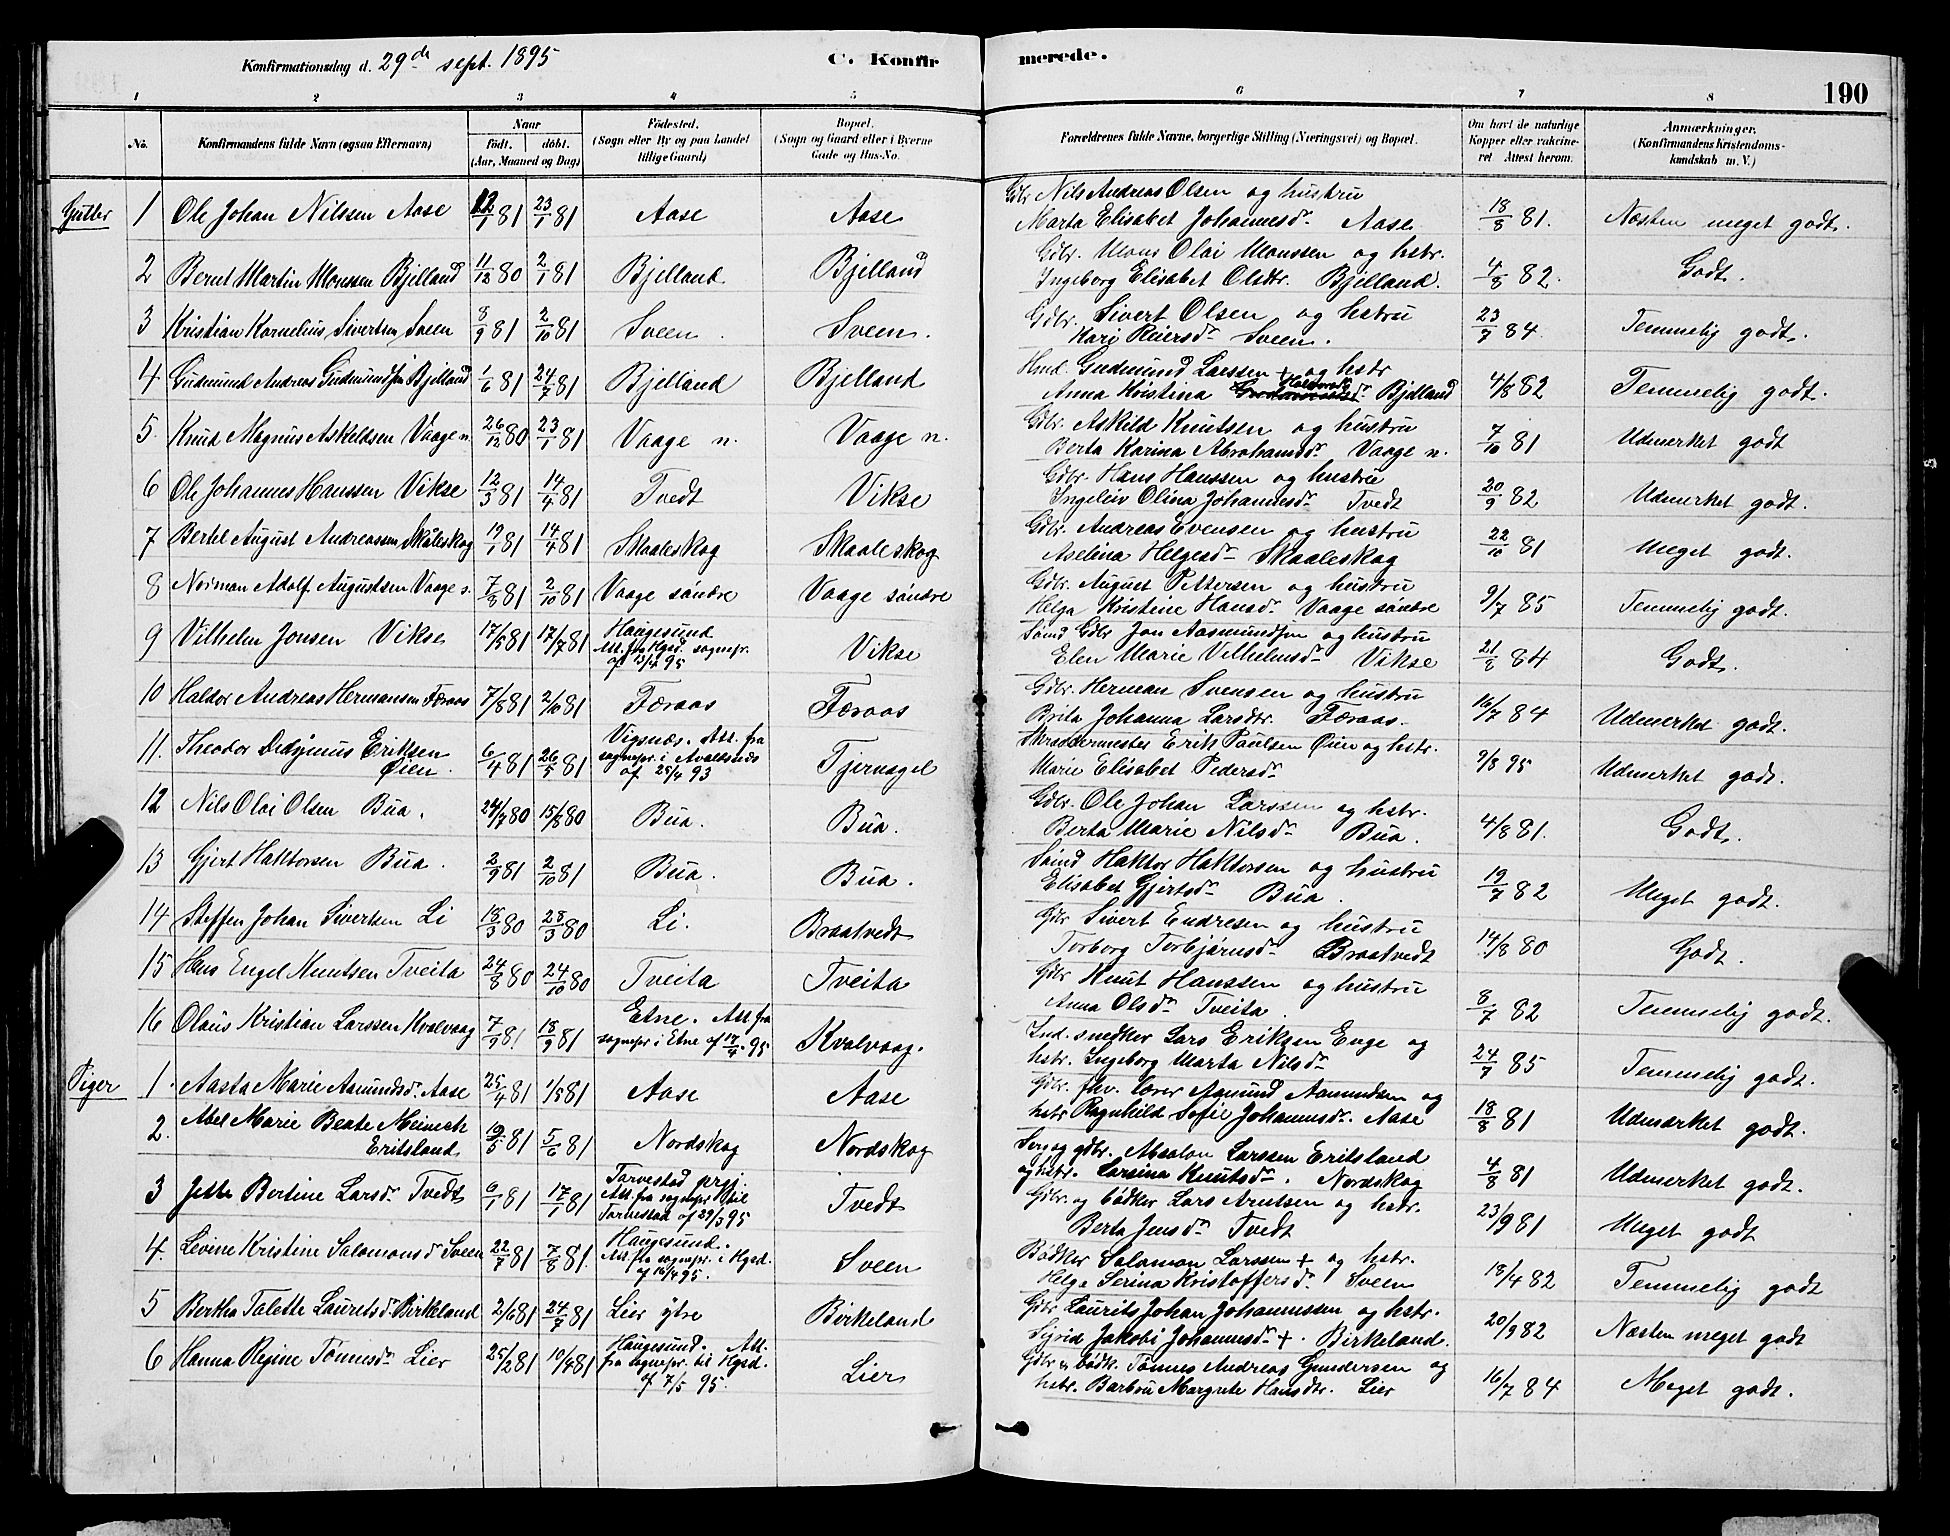 Konfirmationsdag d. 29de sept. 1895
C. Konfirmerede.
190
1 2 3 4 5 6 7 8
No. Konfirmandens fulde Navn (ogsaa Efternavn) Naar født. døbt. (Aar, Maaned og Dag) Fødested. (Sogn eller By og paa Landet tillige Gaard) Bopæl. (Sogn og Gaard eller i Byerne Gade og Hus-No. Forældrenes fulde Navne, borgerlige Stilling (Næringsvei) og Bopæl. Om havt de naturlige Kopper eller vakcineret Attest herom. Anmærkninger. (Konfirmandens Kristendomskundskab m. V.)
Gutter
1 Ole Johan Nilssen Aase 12/1 81 23/1 81 Aase Aase Gdbr Nils Andreas Olsen og hustru Marta Elisabet Johannesdr Aase 18/8 81. Næsten meget godt.
2 Bernt Martin Monssen Bjelland 11/12 80 2/1 81 Bjelland Bjelland Gdbr. Mons Olai Monssen og hstr. Ingeborg Elisabet Olsdtr. Bjelland. 4/8 82. Godt.
3 Kristian Kornelius Sivertsen Sveen 8/9 81 2/10 81 Sveen. Sveen. Gdbr. Sivert Olsen og hstru Kari Reiersdr Sveen. 23/7 84. Temmelig godt.
4 Gudmund Andreas Gudmundsen Bjelland 1/6 81 24/7 81 Bjelland Bjelland Hmd. Gudmund Larssen + og hstr Anna Kristina Haldorsdr Bjelland 4/8 82 Temmelig godt.
5. Knud Magnus Askeldsen Vaage n. 26/12 80 23/1 81 Vaage n. Vaage n. Gdbr. Askild Knutsen og hustru Berta Karina Abrahamsdr Vaage n. 7/10 81 Udmerket godt
6 Ole Johannes Hanssen Vikse 12/3 81 14/4 81 Tvedt Vikse Gdbr. Hans Hanssen og hustru Ingeleiv Olina Johannesdr Tvedt 20/9 82 Udmerket godt.
7 Bertel August Andreassen Skåleskog 19/1 81 14/4 81 Skaaleskog Skaaleskog Gdbr. Andreas Evensen og hustru Aselina Helgesdr Skaaleskog 22/10 81 Meget godt.
8 Norman Adolf Augustsen Vaage s. 7/8 81 2/10 81 Vaage søndre Vaage søndre Gdbr. August Pettersen og hustru Helga Kristine Hansdr Vaage søndre 9/7 85 Temmelig godt.
9 Vilhelm Jonsen Vikse 17/5 81 17/7 81 Haugesund Att. fra Hgsd. sognepr. af 13/2 95 Vikse Gdbr Jon Aasmundsen og hustru Elen Marie Vilhelmsdr Vikse 21/8 84 Godt.
10 Haldor Andreas Hermansen Færaas 7/8 81 2/10 81 Færaas Færaas Gdbr. Herman Svensen og hustru Brita Johanna Larsdtr. Færaas. 16/7 84 Udmerket godt.
11. Theodor Didymus Eriksen Øien. 6/4 81 26/5 81 Vigsnæs. Att. fra sognepr. i Avaldsnes af 25/4 93 Tjernagel Skræddermester Erik Paulsen Øien og hstr. Marie Elisabet Pedersdr 9/8 95 Udmerket godt.
12 Nils Olai Olsen Bua. 24/7 80 15/8 80 Bua. Bua. Gdbr. Ole Johan Larssen og hstr. Berta Marie Nilsdr Bua. 4/8 81. Godt.
13 Gjert Haktorsen Bua. 2/9 81 2/10 81 Bua. Bua. Haktor Haktorsen og hustru Elisabet Gjertsdr Bua. 19/7 82 Meget godt.
14 Steffen Johan Sivertsen Li 18/3 80 28/3 80 Li. Braatvedt Gdbr Sivert Endresen og hustru Torborg Torbjørnsdr Braatvedt 14/8 80 Godt.
15 Hans Engel Knutsen Tveita 24/8 80 24/10 80 Tveita Tveita Gdbr Knut Hanssen og hustru Anna Olsdr Tveita. 8/7 82 Temmelig godt.
16 Olaus Kristian Larssen Kvalvaag 7/9 81 18/9 81 Etne. Att. fra sognepr i Etne af 17/4 95 Kvalvaag. Ind. snedker Lars Eriksen Enge og hstr. Ingeborg Marta Nilsdr 24/7 85 Temmelig godt.
Piger
1. Aasta Marie Aamundsdr. Aase 25/4 81 1/5 81 Aase Aase Gdbr. fhv. lærer Aamund Aamundsen og hstr Ragnhild Sofie Johannesdr. Aase 18/8 81 Udmærket godt.
2. Abel Marie Beate Meinich Eritsland 19/5 81 5/6 81 Nordskog Nordskog gdbr. Absalon Larssen Eritsland og hstr. Larsina Knutsdr. Nordskog 4/8 81 Udmerket godt.
3 Jette Bertine Larsdr Tvedt 6/1 81 17/1 81 Torvestad prgj. Att. fra sognepr til Torvestad af 29/3 95 Tvedt Gdbr. og bødker Lars Arntsen og hstr. Berta Jensdr Tvedt 23/9 81 Meget godt
4. Levine Kristine Salomonsdr Sveen 22/7 81 7/8 81. Haugesund. Att. fra sognepr. i Hgsd. af 16/4 95. Sveen Bødker Salomon Larssen + og hstr. Helga Serina Kristoffersdr Sveen 18/4 82 Temmelig godt
5 Bertha Talette Lauritsdr. Birkeland 2/6 81 24/7 81 Lier ytre Birkeland Gdbr Laurits Johan Johannessen og hstr. Sigrid Jakobi Johannesdr +. Birkeland. 20/9 82 Næsten meget godt
6 Hanna Regine Tønnesdr Lier 25/2 81 10/4 81 Haugesund. Att. fra sognepr. til Hgsd. af 7/5 95. Lier Gdbr & bødk. Tønnes Andreas Gundersen og hstr. Barbru Margrete Hansdtr. Lier 16/7 84 Meget godt.